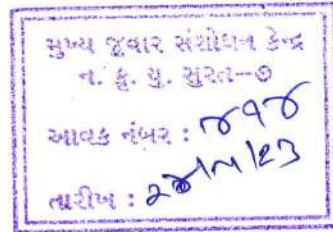 મુખ્ય જુવાર સંશોધન કેન્દ્ર
ન. કૃ. યુ. સુરત--૭
આવક નંબર : ૪૧૪
તારીખ :